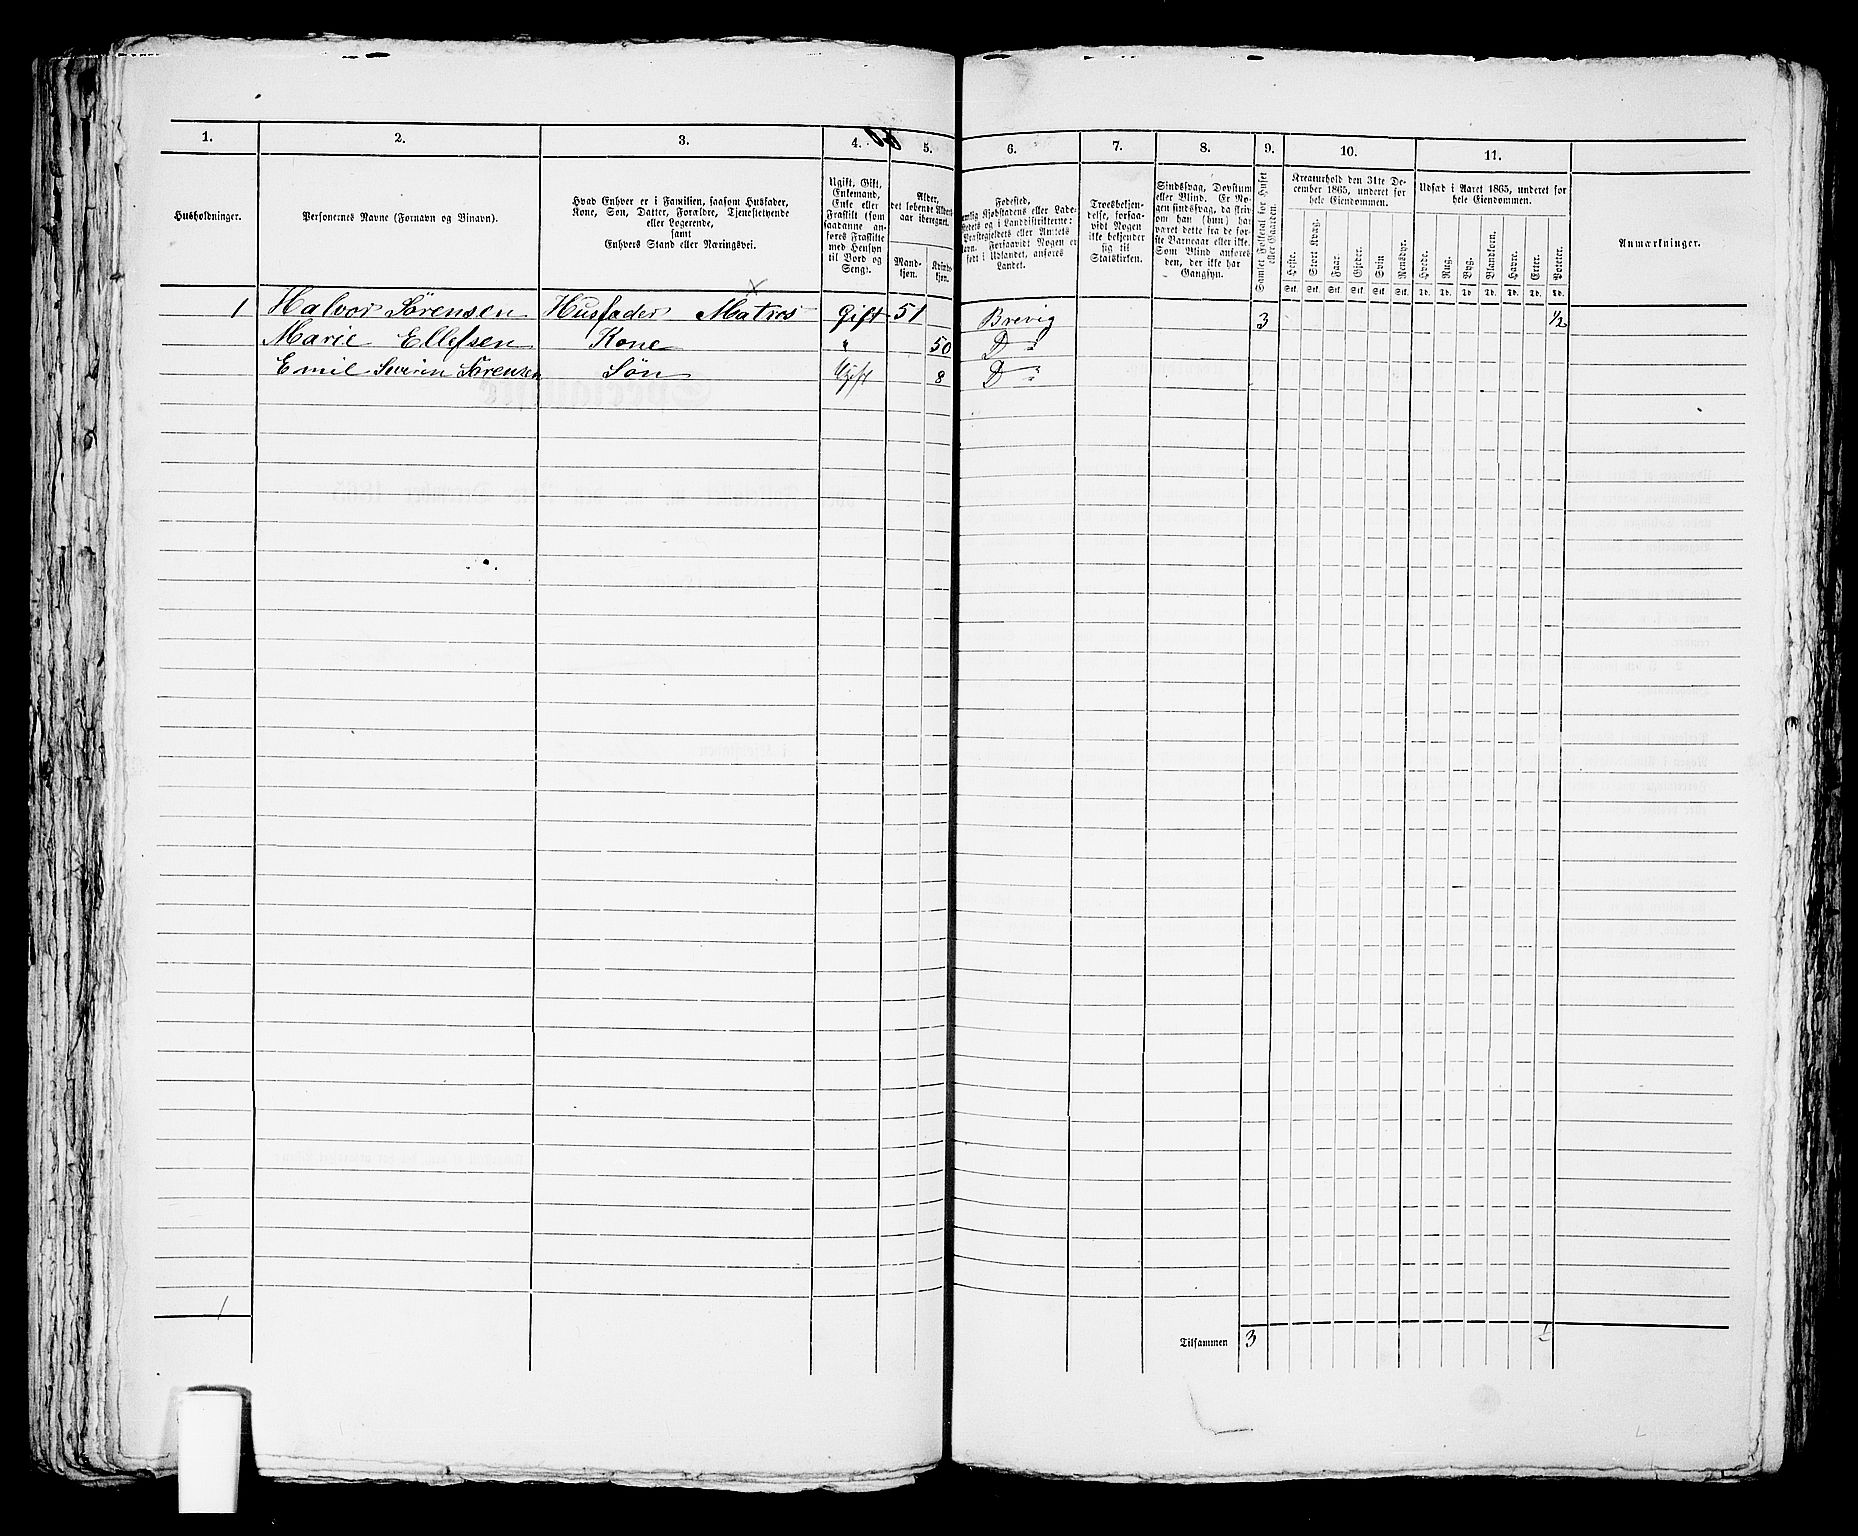 1. 2. 3. 4. 5. 6. 7. 8. 9. 10. 11.
Husholdninger.
Personernes Navne (Fornavn og Binavn).
Hvad Enhver er i Familien, saasom Husfader,
Kone, Søn, Datter, Forældre, Tjenestetyende
eller Logerende,
samt
Enhvers Stand eller Næringsvei.
Ugift, Gift,
Enkemand,
Enke eller
Fraskilt (som
saadanne an-
føres Fraskilte
med Hensyn
til Bord og
Seng).
Alder,
det løbende Alders-
aar iberegnet.
Mand-
kjøn.
Kvinde-
kjøn.
Fødested,
nemlig Kjøbstadens eller Lade-
stedets og i Landdistrikterne:
Præstegjeldets eller Amtets
Navn. Forsaavidt Nogen er
født i Udlandet, anføres
Landet.
Troesbekjen-
delse, forsaa-
vidt Nogen
ikke bekjender
sig
til
Statskirken.
Sindssvag, Døvstum
eller Blind. Er No-
gen sindssvag, da skriv
om han (hun) har
været dette fra de før-
ste Barneaar eller ikke.
Som Blind anføres
den, der ikke har
Gangsyn.
Samlet Folketal for Huset
eller Gaarden.
Kreaturhold den 31te De-
cember 1865, underet for
hele Eiendommen.
Heste. Stort Kvæg. Faar. Gjeder. Svin Rensdyr.
Stk. Stk. Stk. Stk. Stk. Stk.
Udsæd i Aaret 1865, underet for
hele Eiendommen.
Hvede. Rug. Byg. Blandkorn. Havre. Erter. Poteter.
Td. Td. Td. Td. Td. Td. Td.
Anmærkninger.
1 Halvor Sørensen Husfader Matros Gift 51 Brevig 3 ½
Marie Ellefsen Kone " 50 D
Emil Severin Sørensen Søn Ugift 8 D
1
Tilsammen 3 ½